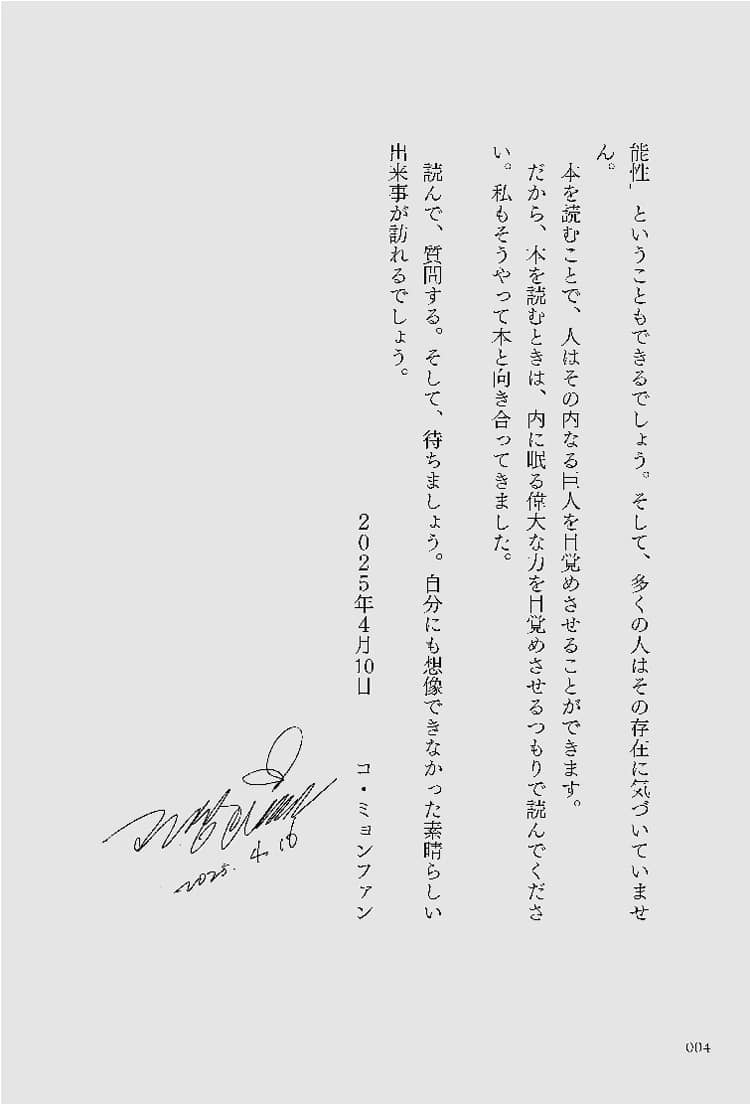 能性」ということもできるでしょう。そして、多くの人はその存在に気づいていませ
ん。
本を読むことで、人はその内なる巨人を目覚めさせることができます。
だから、本を読むときは、内に眠る偉大な力を目覚めさせるつもりで読んでくださ
い。私もそうやって本と向き合ってきました。
読んで、質問する。そして、待ちましょう。自分にも想像できなかった素晴らしい
出来事が訪れるでしょう。
2025年4月10日 コ・ミョンファン
2025. 4. 10
004